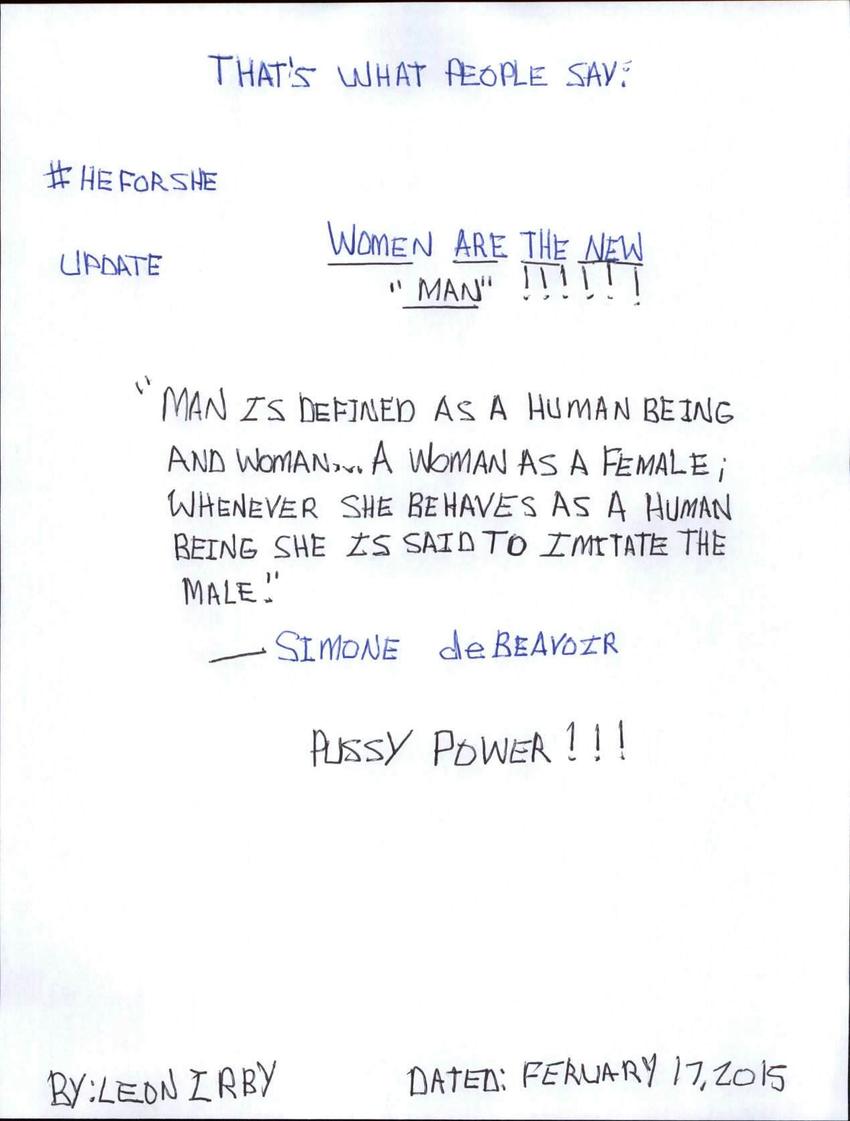 THAT'S WHAT PEOPLE SAY:
#HEFORSHE
UPDATE
WOMEN ARE THE NEW
"MAN" !!!!!!
"MAN IS DEFINED AS A HUMAN BEING
AND WOMAN.... A WOMAN AS A FEMALE;
WHENEVER SHE BEHAVES AS A HUMAN
BEING SHE IS SAID TO IMITATE THE
MALE."
— SIMONE deBEAVOIR
PUSSY POWER!!!
BY: LEON IRBY DATED: FERUARY 17, 2015